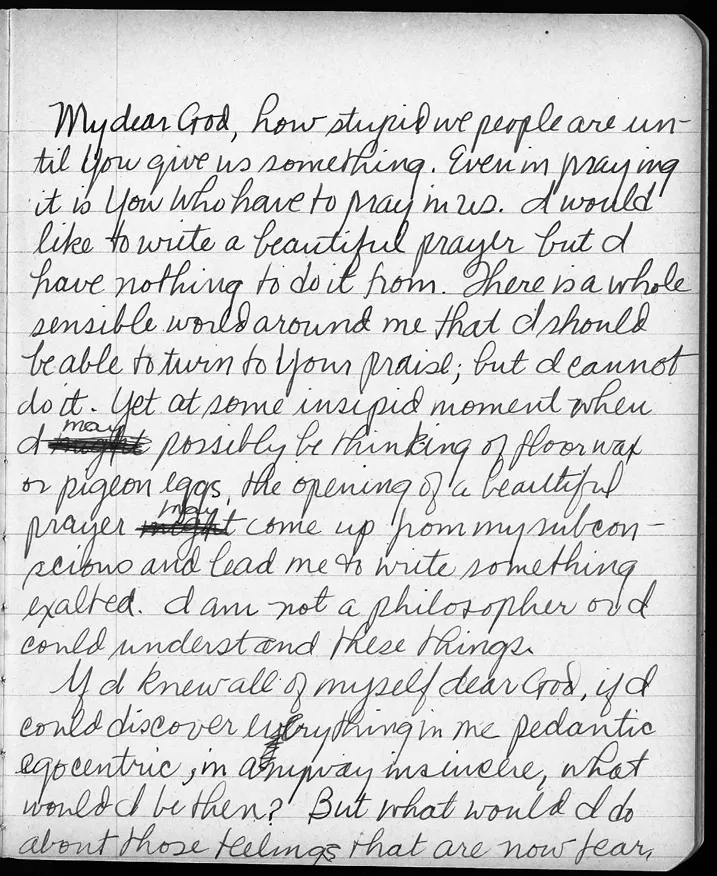 My dear God, how stupid we people are un-
til You give us something. Even in praying
it is You who have to pray in us. I would
like to write a beautiful prayer but I
have nothing to do it from. There is a whole
sensible world around me that I should
be able to turn to Your praise; but I cannot
do it. Yet at some insipid moment when
I may possibly be thinking of floor wax
or pigeon eggs, the opening of a beautiful
prayer may come up from my subcon-
scious and lead me to write something
exalted. I am not a philosopher or I
could understand these things.
If I knew all of myself dear God, if I
could discover everything in me pedantic
egocentric, in anyway insincere, what
would I be then? But what would I do
about those feelings that are now fear,